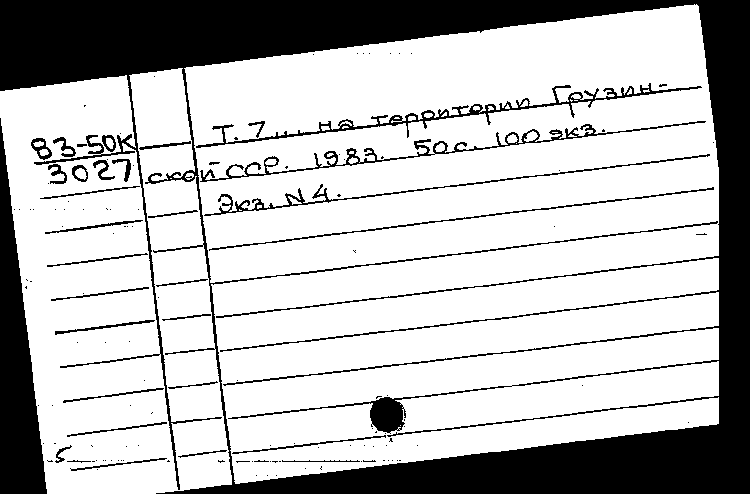 83-50К
3027
Т. 7... на территории Грузин-
ской ССР. 1983. 50 с. 100 экз.
Экз. N 4.
5